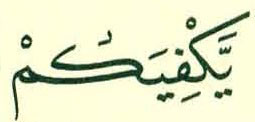 يَّكْفِيَكُمْ